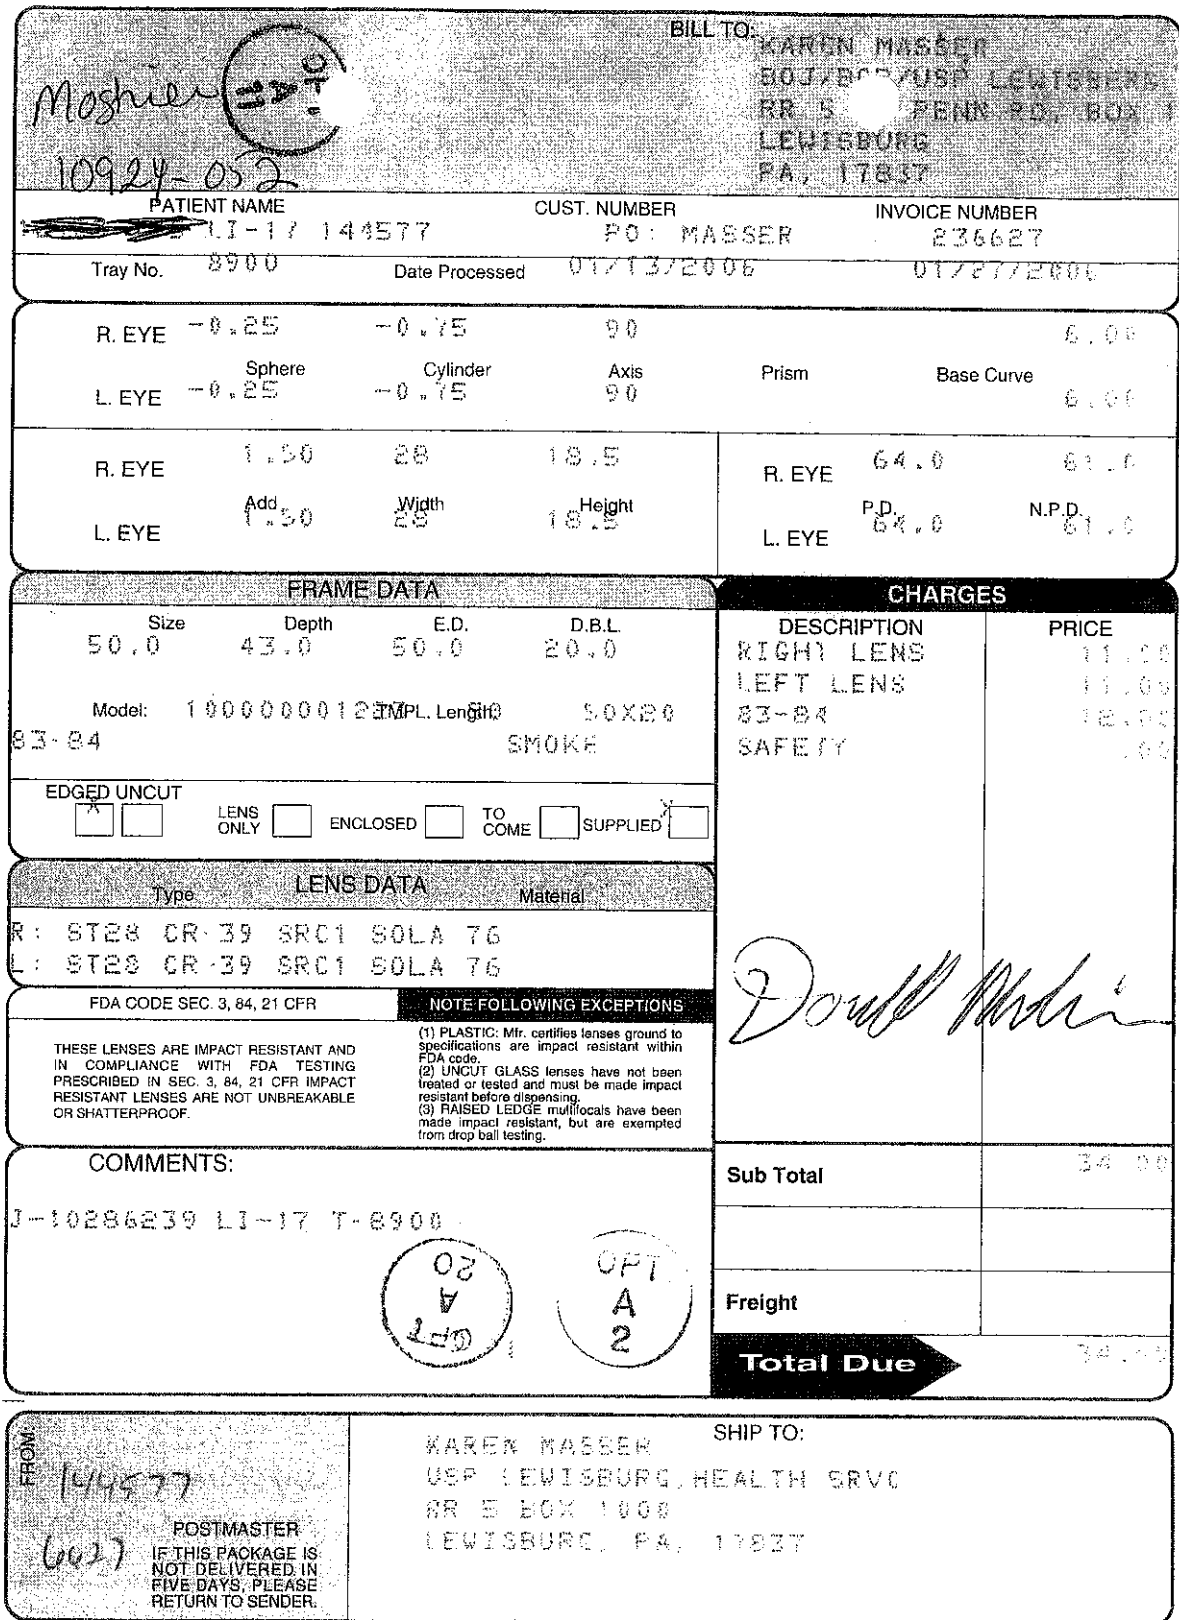 BILL TO:
KAREN MASSER
BOJ/BOP/USP LEWISBURG
RR 5 PENN RD, BOX 1
LEWISBURG
PA, 17837
Moshier
OPT
A
11
10924-052
PATIENT NAME CUST. NUMBER INVOICE NUMBER
LI-17 144577 PO: MASSER 236627
Tray No. 8900 Date Processed 01/13/2006 01/27/2006
R. EYE -0.25 -0.75 90 6.00
Sphere Cylinder Axis Prism Base Curve
L. EYE -0.25 -0.75 90 6.00
R. EYE 1.50 28 18.5 R. EYE 64.0 61.0
Add Width Height P.D. N.P.D.
L. EYE 1.50 28 18.5 L. EYE 64.0 61.0
FRAME DATA
Size Depth E.D. D.B.L.
50.0 43.0 50.0 20.0
Model: TMPL. Length: 50X20
83-84 SMOKE
EDGED UNCUT
X
LENS ONLY ENCLOSED TO COME SUPPLIED X
CHARGES
DESCRIPTION PRICE
RIGHT LENS 11.00
LEFT LENS 11.00
83-84 12.00
SAFETY .00
LENS DATA
Type Material
R: ST28 CR-39 SRC1 SOLA 76
L: ST28 CR-39 SRC1 SOLA 76
FDA CODE SEC. 3, 84, 21 CFR
THESE LENSES ARE IMPACT RESISTANT AND
IN COMPLIANCE WITH FDA TESTING
PRESCRIBED IN SEC. 3, 84, 21 CFR IMPACT
RESISTANT LENSES ARE NOT UNBREAKABLE
OR SHATTERPROOF.
NOTE FOLLOWING EXCEPTIONS
(1) PLASTIC: Mfr. certifies lenses ground to
specifications are impact resistant within
FDA code.
(2) UNCUT GLASS lenses have not been
treated or tested and must be made impact
resistant before dispensing.
(3) RAISED LEDGE multifocals have been
made impact resistant, but are exempted
from drop ball testing.
COMMENTS:
J-10286239 LI-17 T-8900
OPT
A
20
OPT
A
2
Sub Total 34.00
Freight
Total Due 34.00
FROM:
144577
6627
POSTMASTER
IF THIS PACKAGE IS
NOT DELIVERED IN
FIVE DAYS, PLEASE
RETURN TO SENDER.
SHIP TO:
KAREN MASSER
USP LEWISBURG, HEALTH SRVC
RR 5 BOX 1000
LEWISBURG, PA, 17837